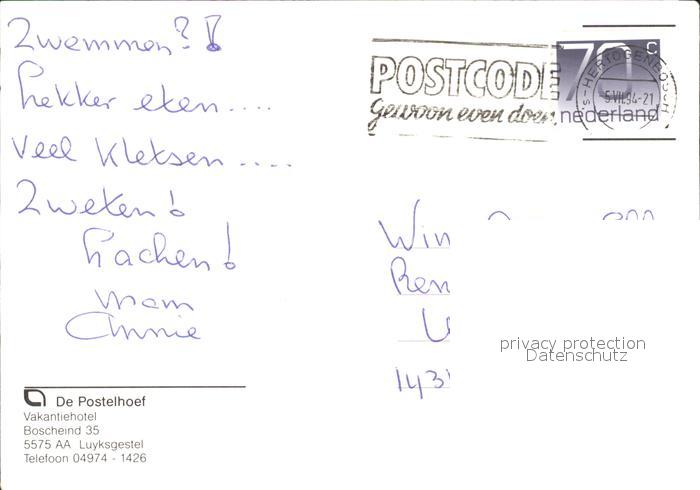 Zwemmen?!
Lekker eten....
Veel kletsen....
Zweten!
Lachen!
mam
Annie
De Postelhoef
Vakantiehotel
Boscheind 35
5575 AA Luyksgestel
Telefoon 04974 - 1426
POSTCODE
Gewoon even doen
70 c
nederland
's-HERTOGENBOSCH
5.VII.94-21
Win
Ren
143
privacy protection
Datenschutz